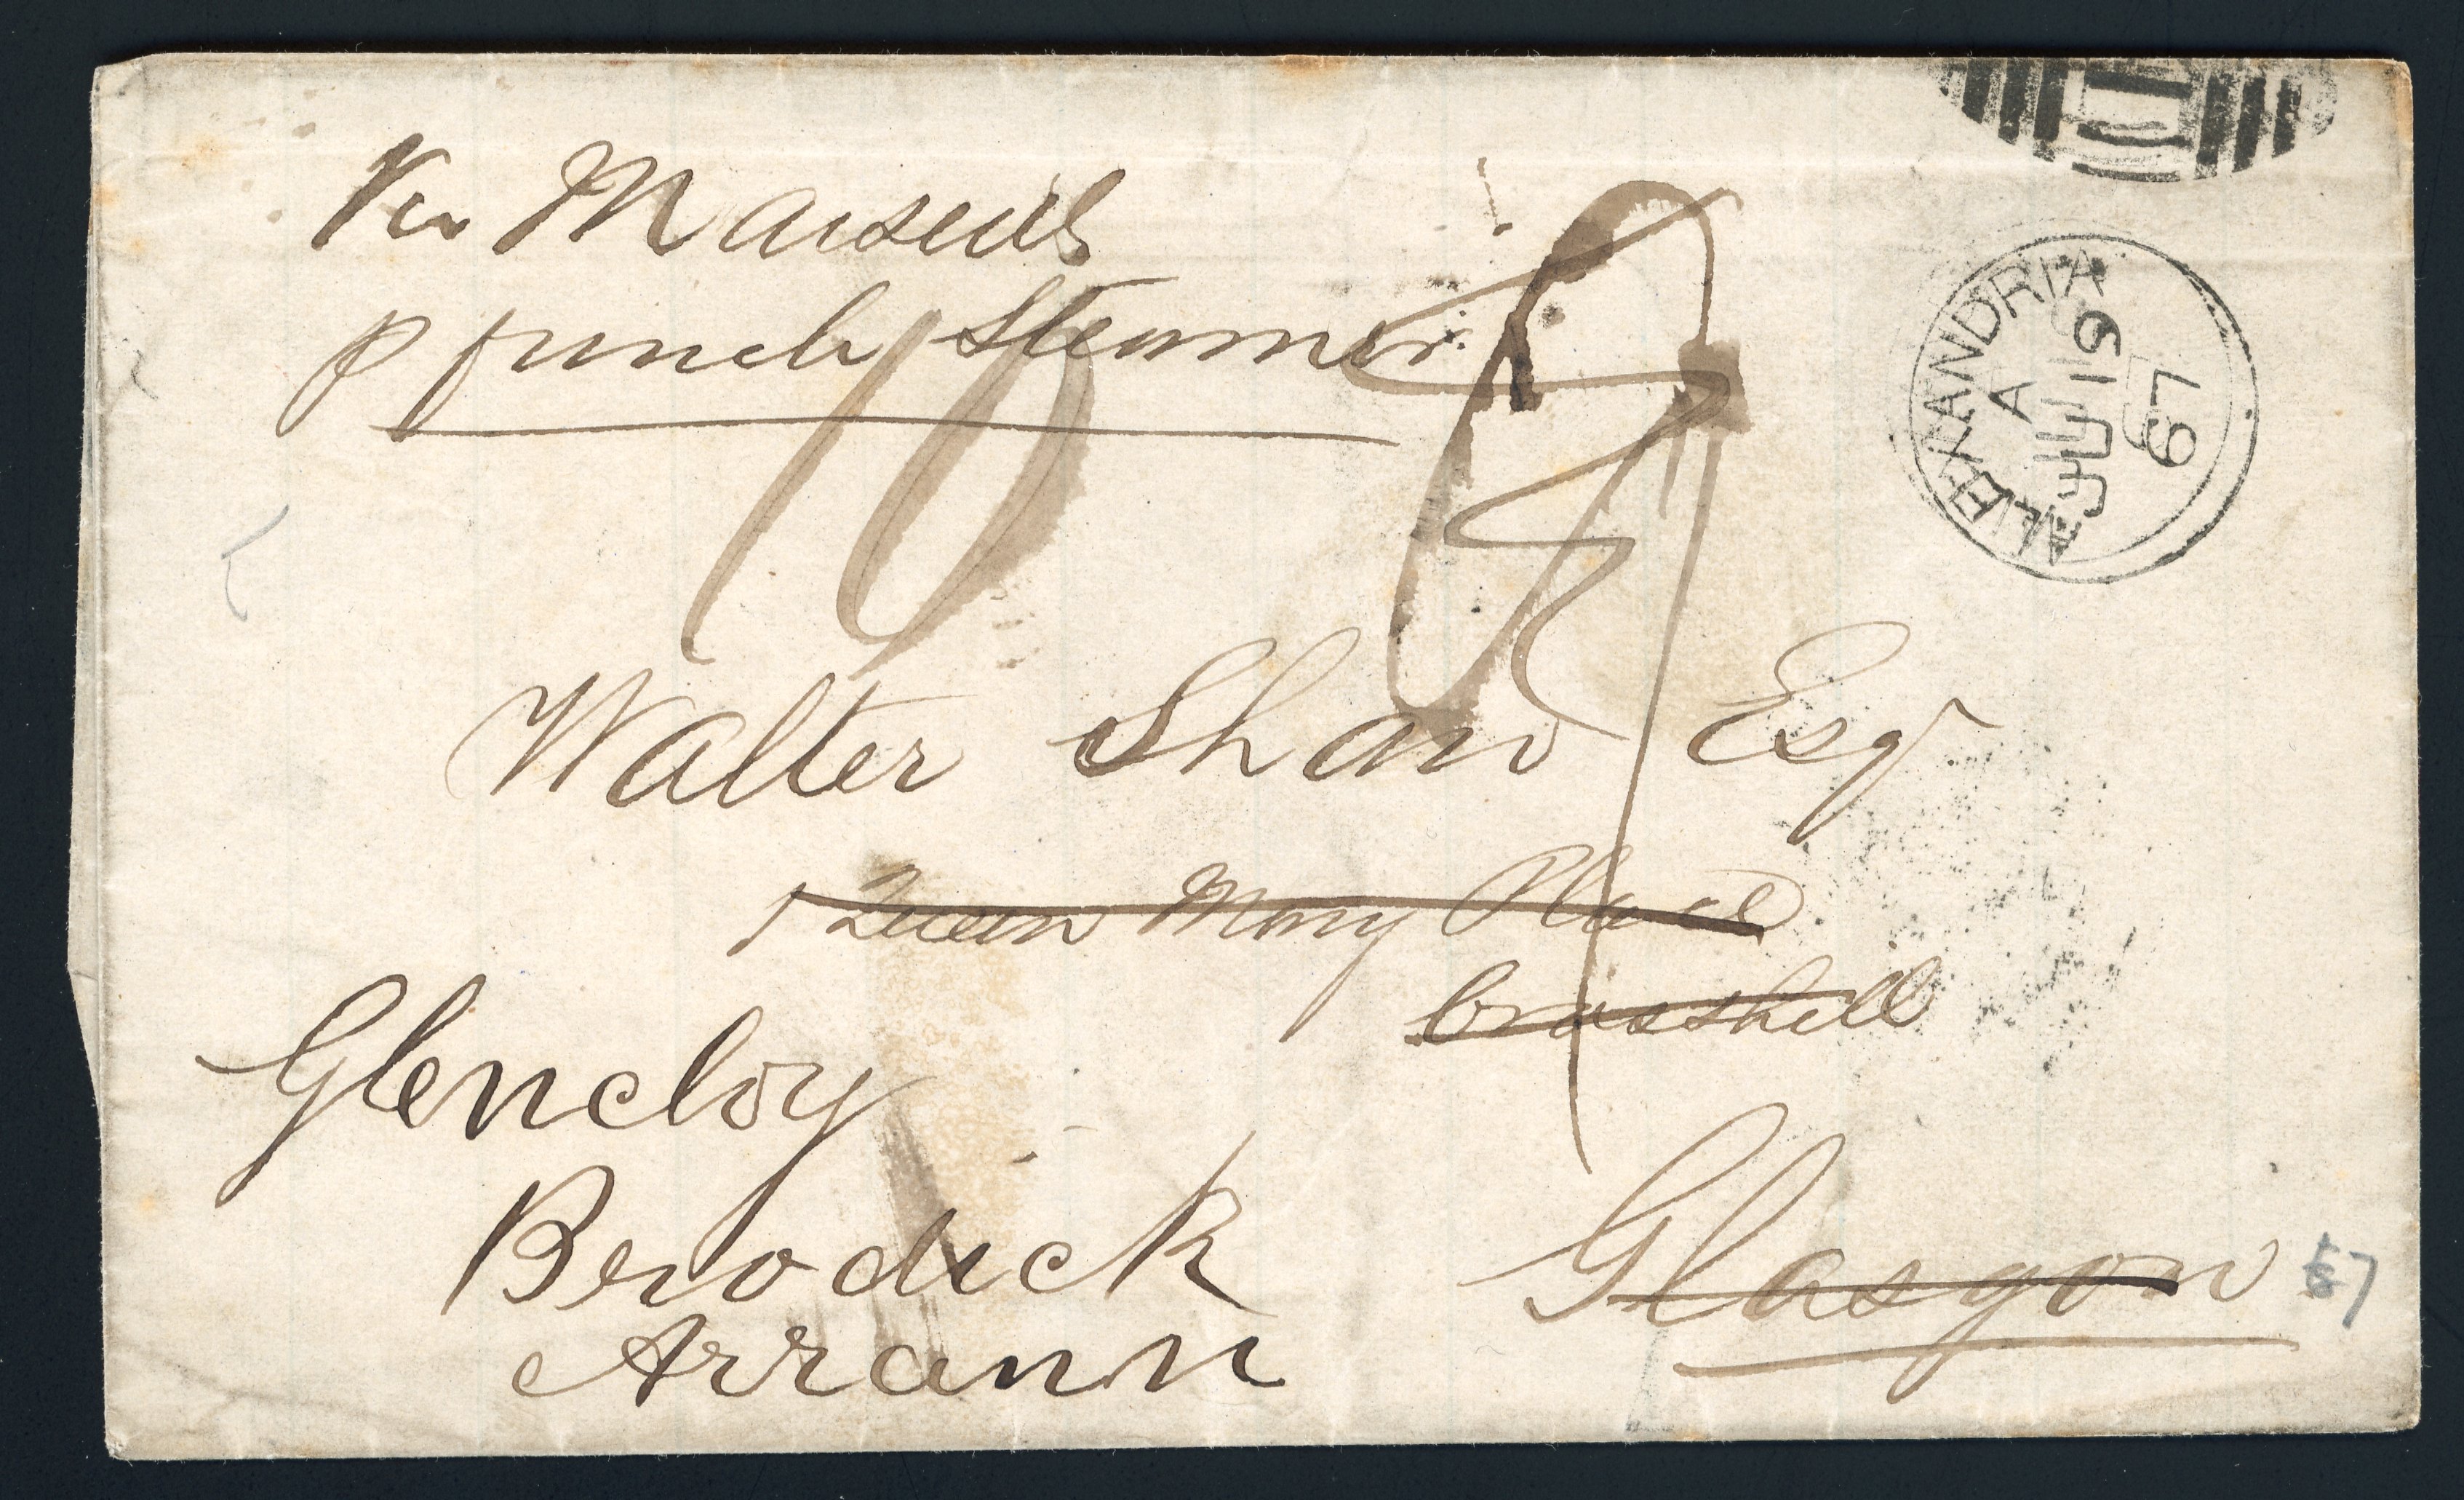 Via Marseils
p french Steamer
10
ALEXANDRIA
A
JU 19
67
Walter Shaw Esq
1 Queen Mary Place
Crosshill
Glasgow
Glencloy
Brodick
Arrann
67